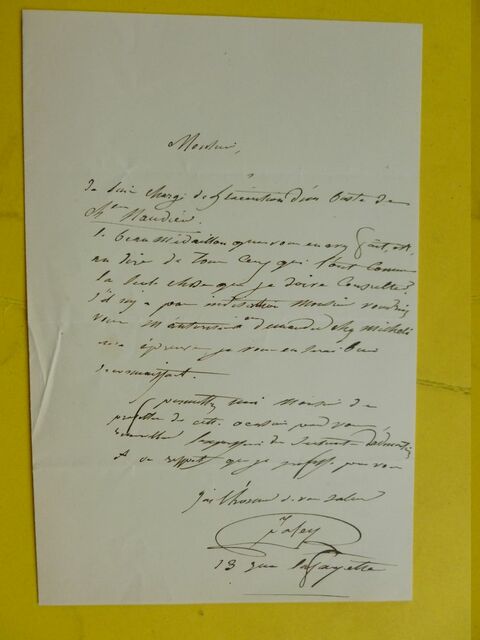 Monsieur,
Je suis chargé de l'exécution d'un buste de
Mme Naudier.
le beau médaillon que vous en avez fait, est,
au dire de tous ceux qui l'ont connu
la seule chose que je doive consulter.
S'il n'y a pas indiscrétion Monsieur voudriez
vous m'autoriser à en demander chez
une épreuve je vous en serai bien
reconnaissant.
permettez moi Monsieur de
profiter de cette occasion pour vous
renouveller l'expression des sentiments d'admiration
& de respect que je professe pour vous
J'ai l'honneur de vous saluer
13 rue Lafayette